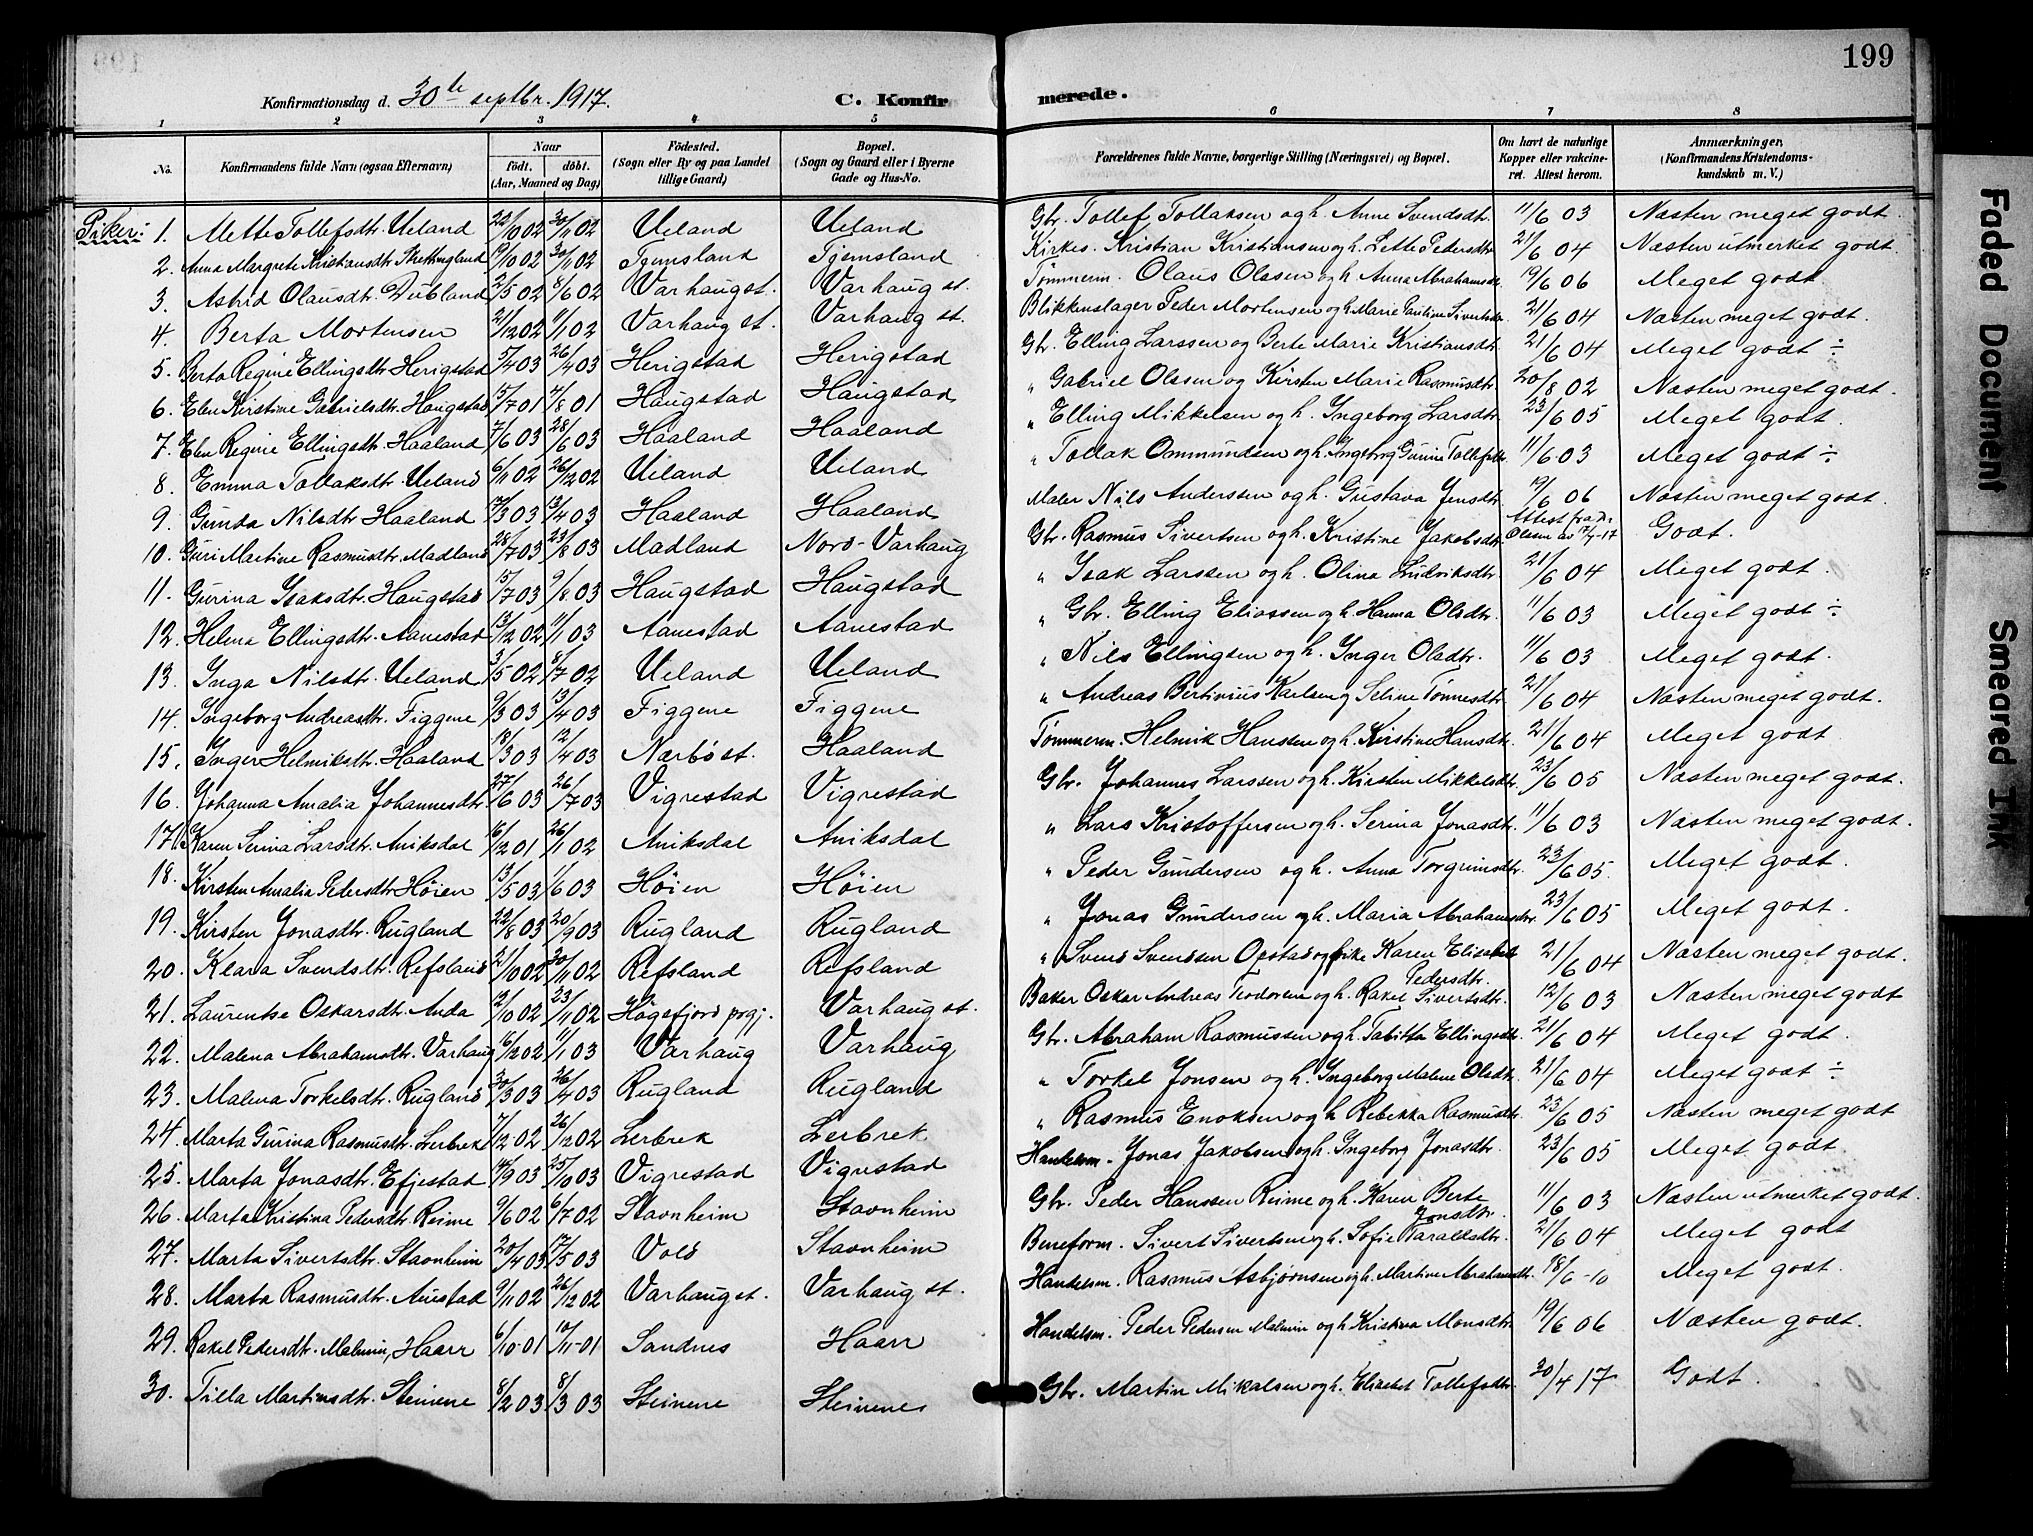 199
Konfirmationsdag d. 30te septbr. 1917.
C. Konfirmerede.
1 2 3 4 5 6 7 8
No.
Konfirmandens fulde Navn (ogsaa Efternavn)
Naar
Födt. döbt.
(Aar, Maaned og Dag)
Födested.
(Sogn eller By og paa Landet tillige Gaard)
Bopæl.
(Sogn og Gaard eller i Byerne Gade og Hus-No.
Forældrenes fulde Navne, borgerlige Stilling (Næringsvei) og Bopæl.
Om havt de naturlige Kopper eller vakcineret. Attest herom.
Anmærkninger,
(Konfirmandens Kristendomskundskab m. V.)
Piker:
1. Mette Tollefsdtr. Ueland 22/10 02 30/11 02 Ueland Ueland Gbr. Tollef Tollaksen og h. Anne Svendsdtr. 11/6 03 Næsten meget godt.
2. Anna Margrete Kristiansdtr. Skretingland 19/10 02 30/11 02 Tjemsland Tjemsland Kirkes. Kristian Kristiansen og h. Lette Pedersdtr. 21/6 04 Næsten utmerket godt.
3. Astrid Olausdtr. Dubland 2/5 02 8/6 02 Varhaug st. Varhaug st. Tømmerm. Olaus Olssen og h. Anna Abrahamsdtr. 19/6 06 Meget godt.
4. Berta Mortensen 21/12 02 1/1 02 Varhaug st. Varhaug st. Blikkenslager Peder Mortensen og h. Marie Pauline Sivertsdtr. 21/6 04 Næsten meget godt.
5. Berta Regine Ellingsdtr. Herigstad 5/4 03 26/4 03 Herigstad Herigstad Gbr. Elling Larssen og Berte Marie Kristiansdtr. 21/6 04 Meget godt ÷
6. Elen Kirstine Gabrielsdtr. Haugstad 15/7 01 4/8 01 Haugstad Haugstad " Gabriel Olssen og Kirsten Marie Rasmusdtr. 20/8 02 Næsten meget godt.
7. Elen Regine Ellingsdtr. Haaland 7/6 03 28/6 03 Haaland Haaland " Elling Mikkelsen og h. Ingeborg Larsdtr. 23/6 05 Meget godt.
8. Emma Tollaksdtr. Ueland 6/11 02 26/12 02 Ueland Ueland " Tollak Ommundsen og h. Ingeborg Gurine Tollefsdtr. 11/6 03 Meget godt ÷
9. Gunda Nilsdtr. Haaland 17/3 03 13/4 03 Haaland Haaland Maler Nils Anderssen og h. Gustava Jensdtr. 19/6 06 Næsten meget godt.
10. Guri Martine Rasmusdtr. Madland 28/7 03 23/8 03 Madland Nord-Varhaug Gbr. Rasmus Sivertsen og h. Kristine Jakobsdtr. Attest fra dr. Olsen av 17/7-17 Godt.
11. Gurina Isaksdtr. Haugstad 15/7 03 9/8 03 Haugstad Haugstad " Isak Larssen og h. Olina Ludviksdtr. 21/6 04 Meget godt.
12. Helena Ellingsdtr. Aanestad 13/12 02 11/1 03 Aanestad Aanestad " Gbr. Elling Eliassen og h. Hanna Olsdtr. 11/6 03 Meget godt ÷
13. Inga Nilsdtr. Ueland 3/5 02 8/7 02 Ueland Ueland " Nils Ellingsen og h. Inger Olsdtr. 11/6 03 Meget godt.
14. Ingeborg Andreasdtr. Figgene 9/3 03 13/4 03 Figgene Figgene " Andreas Bertinius Karlsen og Seline Tønnesdtr. 21/6 04 Næsten meget godt.
15. Inger Helmiksdtr. Haaland 18/3 03 12/4 03 Nærbø st. Haaland Tømmerm. Helmik Hanssen og h. Kirstine Hansdtr. 21/6 04 Meget godt
16. Johanna Amalia Johannesdtr. 27/6 03 26/7 03 Vigrestad Vigrestad Gbr. Johannes Larssen og h. Kirsten Mikkelsdtr. 23/6 05 Næsten meget godt.
17. Karen Serina Larsdtr. Aniksdal 16/12 01 26/1 02 Aniksdal Aniksdal " Lars Kristoffersen og h. Serina Jonasdtr. 11/6 03 Næsten meget godt.
18. Kirsten Amalia Pedersdtr. Høien 13/5 03 1/6 03 Høien Høien " Peder Gundersen og h. Anna Torgrimsdtr. 23/6 05. Meget godt.
19. Kirsten Jonasdtr. Rugland 22/8 03 20/9 03 Rugland Rugland " Jonas Gundersen og h. Maria Abrahamsdtr. 23/6 05 Meget godt.
20. Klara Svendsdtr. Refsland 21/10 02 30/11 02 Refsland Refsland " Svend Svendsen Opstad og frke Karen Elisabet Pedersdtr. 21/6 04 Næsten meget godt.
21. Laurentse Oskarsdtr. Anda 12/10 02 23/11 02 Høgsfjord prgj. Varhaug st. Baker Oskar Andreas Teodorsen og h. Rakel Sivertsdtr. 12/6 03 Næsten meget godt
22. Malena Abrahamsdtr. Varhaug 16/12 02 11/1 03 Varhaug Varhaug Gbr. Abraham Rasmussen og h. Tabitta Ellingsdtr. 21/6 04 Meget godt.
23. Malena Torkelsdtr. Rugland 30/3 03 26/4 03 Rugland Rugland " Torkel Jonsen og h. Ingeborg Malene Olsdtr. 21/6 04 Meget godt ÷
24. Marta Gurina Rasmusdtr. Lerbrek 7/12 02 26/12 02 Lerbrek Lerbrek " Rasmus Enoksen og h. Rebekka Rasmusdtr. 23/6 05 Næsten meget godt
25. Marta Jonasdtr. Efjestad 14/9 03 25/10 03 Vigrestad Vigrestad Handelsm. Jonas Jakobsen og h. Ingeborg Jonasdtr. 23/6 05 Meget godt.
26. Marta Kristina Pedersdtr. Reime 9/6 02 6/7 02 Stavnheim Stavnheim Gbr. Peder Hanssen Reime og h. Karen Berte Jonsdtr. 11/6 03 Næsten utmerket godt.
27. Marta Sivertsdtr. Stavnheim 20/4 03 17/5 03 Vold Stavnheim Sivert Sivertsen og h. Sofie Taraldsdtr. 21/6 04 Meget godt
28. Marta Rasmusdtr. Auestad 9/11 02 26/12 02 Varhaug st. Varhaug st. Handelsm. Rasmus Asbjørnsen og h. Martine Abrahamsdtr. 18/6-10 Meget godt.
29. Rakel Pedersdtr. Malmin, Haarr 6/10-01 10/11-01 Sandnes Haarr Handelsm. Peder Pedersen Malmin og h. Kristina Monsdtr. 19/6 06 Næsten godt.
30. Tilla Martinsdtr. Steinene 8/2 03 8/3 03 Steinene Steinenes Gbr. Martin Mikalsen og h. Elisabet Tollefsdtr. 30/4 17 Godt.
Faded Document
Smeared Ink